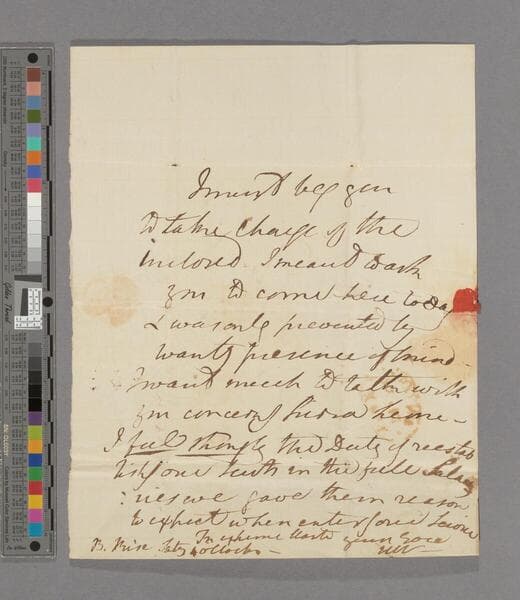 I must beg you
to take Charge of the
inclosed. I meant to ask
you to come here to day
& was only prevented by
want of presence of mind -
I want much to talk with
you concerng home -
I feel strongly the Duty of reestab
lishg our in the full Salar
:ries we gave them reason
to expect when enterg our Service
In extreme haste yours Ever
B. Saty 4 oClock -
Golden Thread